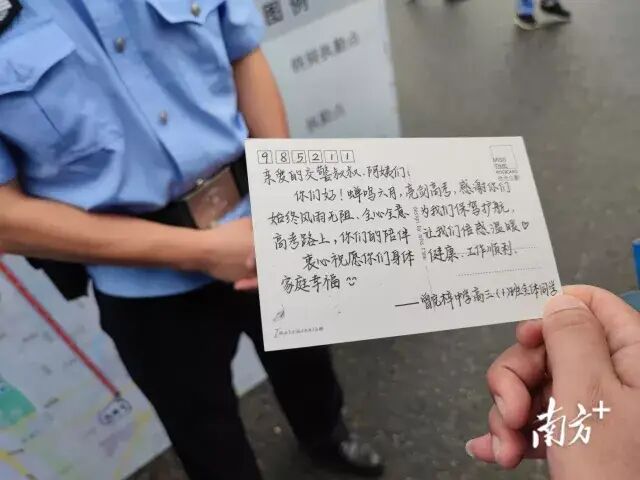 图例
985211
亲爱的交警叔叔、阿姨们:
你们好!蝉鸣六月,亮剑高考,感谢你们
始终风雨无阻、全心全意为我们保驾护航,
高考路上,你们的陪伴让我们倍感温暖♡
衷心祝愿你们身体健康、工作顺利、
家庭幸福
——曾宪梓中学高三(1)班全体同学
南方+